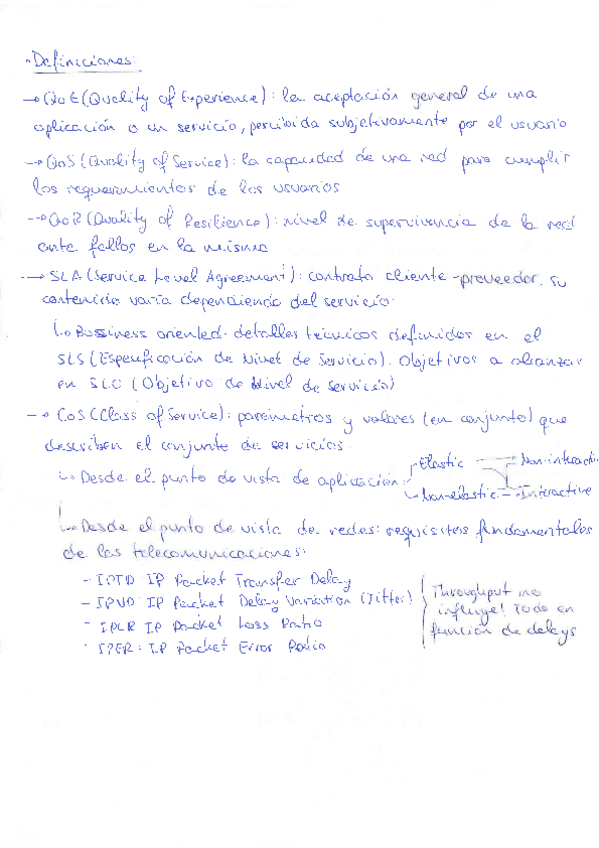 - Definiciones:
→ QoE (Quality of Experience): la aceptación general de una
aplicación o un servicio, percibida subjetivamente por el usuario
→ QoS (Quality of Service): la capacidad de una red para cumplir
los requerimientos de los usuarios
→ QoR (Quality of Resilience): nivel de supervivencia de la red
ante fallos en la misma
→ SLA (Service Level Agreement): contrato cliente-proveedor. su
contenido varía dependiendo del servicio.
↳ Bussiness oriented. detalles técnicos definidos en el
SLS (Especificación de Nivel de Servicio). Objetivos a alcanzar
en SLO (Objetivo de Nivel de Servicio)
→ CoS (Class of Service): parámetros y valores (en conjunto) que
describen el conjunto de servicios.
↳ Desde el punto de vista de aplicación: Elastic Non-interacti
Non-elastic Interactive
↳ Desde el punto de vista de redes: requisitos fundamentales
de las telecomunicaciones:
- IPTD: IP Packet Transfer Delay
- IPVD: IP Packet Delay Variation (Jitter)
- IPLR: IP Packet Loss Ratio
- IPER: IP Packet Error Ratio
Throughput no
influye! Todo en
función de delays